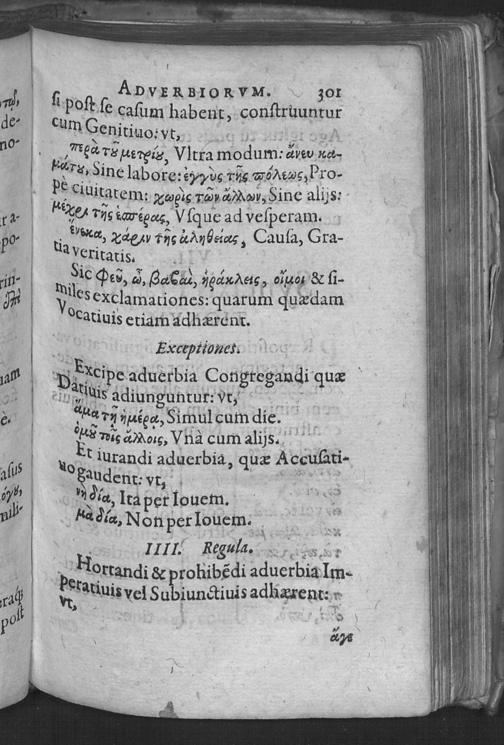 ADVERBIORVM. 301
si post se casum habent, construuntur
cum Genitiuo: vt,
πέρα τοῦ μετρίου, Vltra modum: ἄνευ κα-
μάτου, Sine labore: ἐγγὺς τῆς πόλεως, Pro-
pè ciuitatem: χωρὶς τῶν ἄλλων, Sine alijs:
μέχρι τῆς ἑσπέρας, Vsque ad vesperam.
ἕνεκα, χάριν τῆς ἀληθείας, Causa, Gra-
tia veritatis.
Sic φεῦ, ὦ, βαβαὶ, ἡράκλεις, οἴμοι & si-
miles exclamationes: quarum quædam
Vocatiuis etiam adhærent.
Exceptiones.
Excipe aduerbia Congregandi quæ
Datiuis adiunguntur: vt,
ἅμα τῇ ἡμέρᾳ, Simul cum die.
ὁμοῦ τοῖς ἄλλοις, Vnà cum alijs.
Et iurandi aduerbia, quæ Accusati-
uo gaudent: vt,
νὴ δία, Ita per Iouem.
μὰ δία, Non per Iouem.
IIII. Regula.
Hortandi & prohibēdi aduerbia Im-
peratiuis vel Subiunctiuis adhærent:
vt,
ἄγε